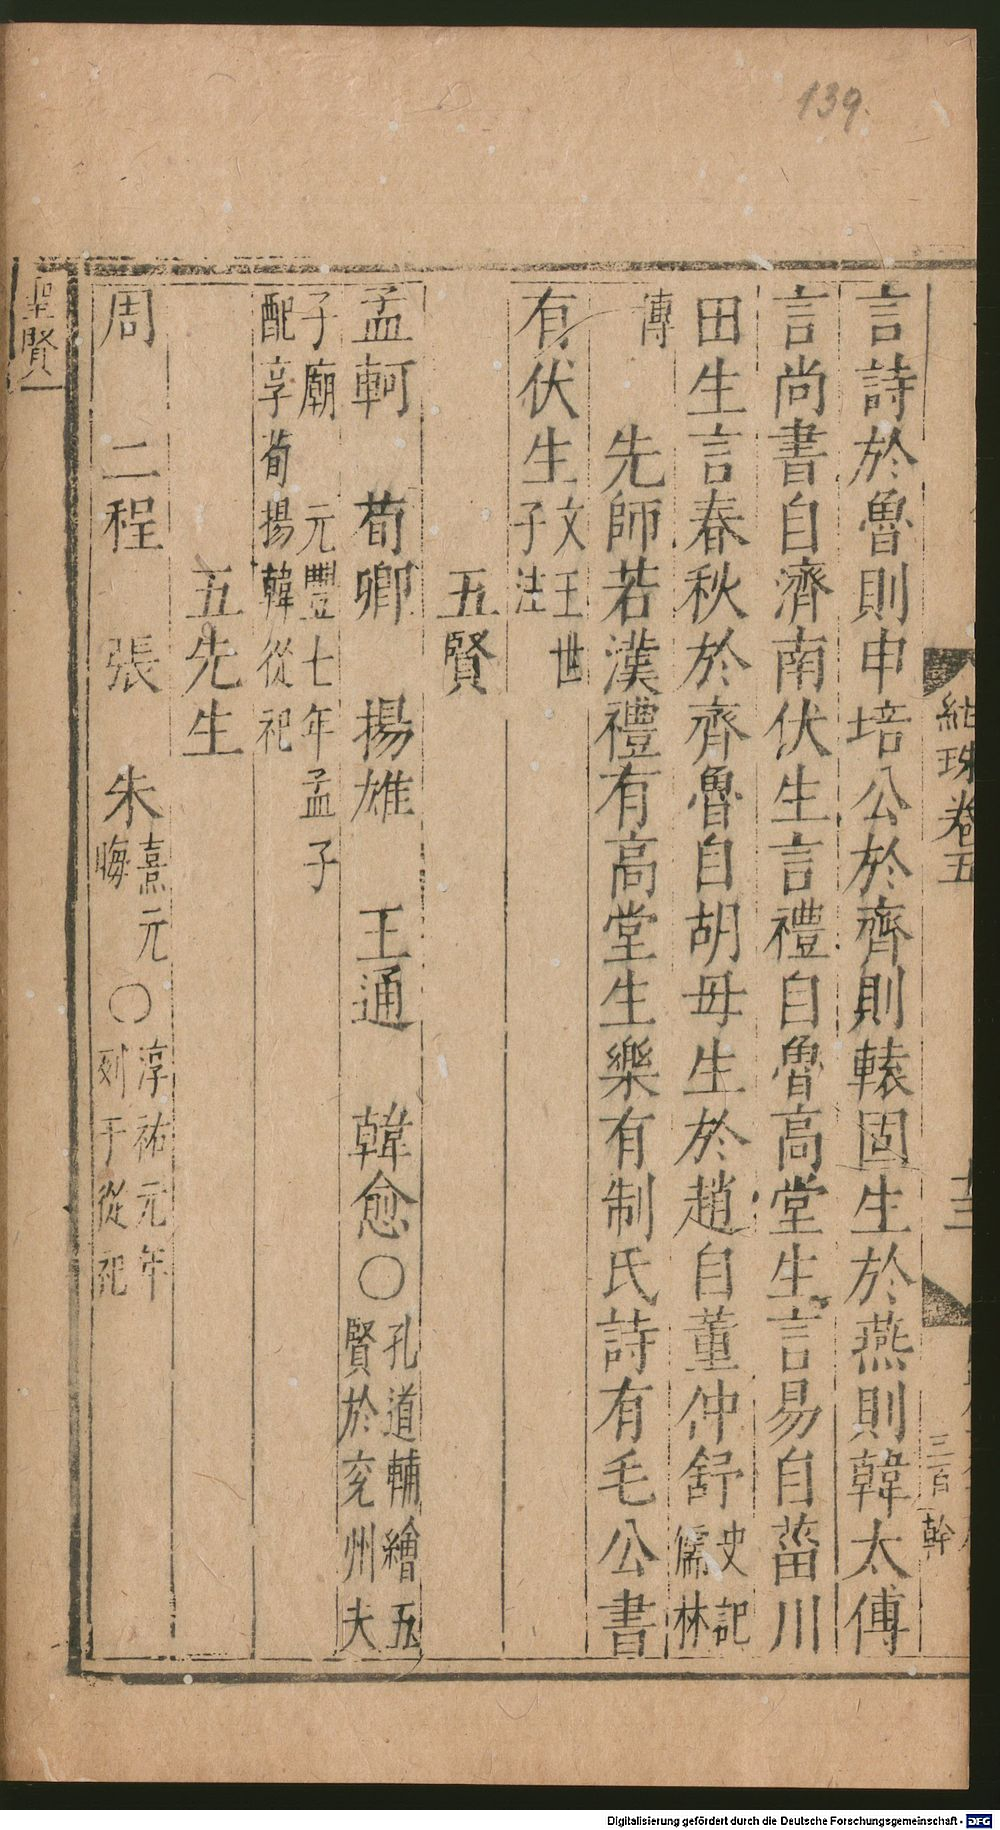 139.
紺珠卷五
十三
三百
幹
言詩於魯則申培公於齊則轅固生於燕則韓太傅
言尚書自濟南伏生言禮自魯高堂生言易自菑川
田生言春秋於齊魯自胡毋生於趙自董仲舒史記儒林
傳 先師若漢禮有高堂生樂有制氏詩有毛公書
有伏生文王世子注
五賢
孟軻 荀卿 揚雄 王通 韓愈○孔道輔繪五賢於兖州夫
子廟 元豐七年孟子配享荀揚韓從祀
五先生
周 二程 張 朱熹元晦○淳祐元年列于從祀
聖賢八
Digitalisierung gefördert durch die Deutsche Forschungsgemeinschaft - DFG